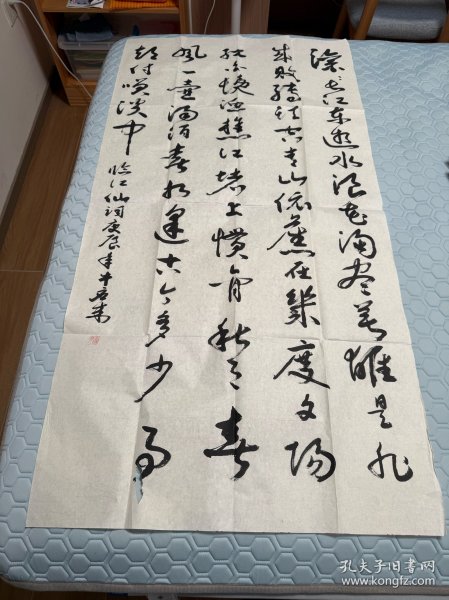 滚滚长江东逝水浪花淘尽英雄是非
成败转头空青山依旧在几度夕阳
红白发渔樵江渚上惯看秋月春
风一壶浊酒喜相逢古今多少事
都付笑谈中
临江仙词庚辰年
孔夫子旧书网
www.kongfz.com